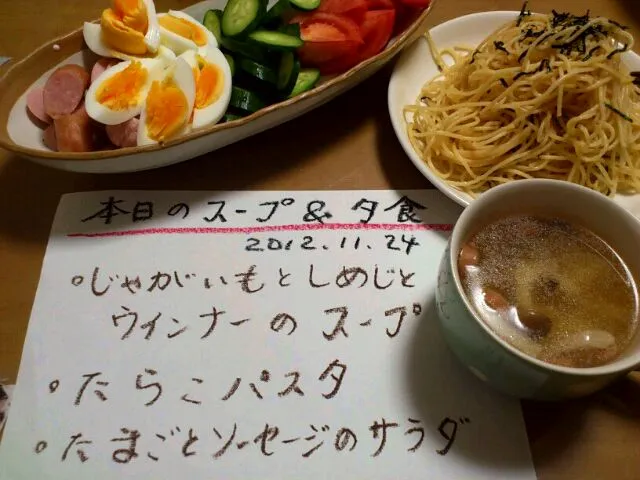 本日のスープ&夕食
2012.11.24
・じゃがいもとしめじと
ウインナーのスープ
・たらこパスタ
・たまごとソーセージのサラダ